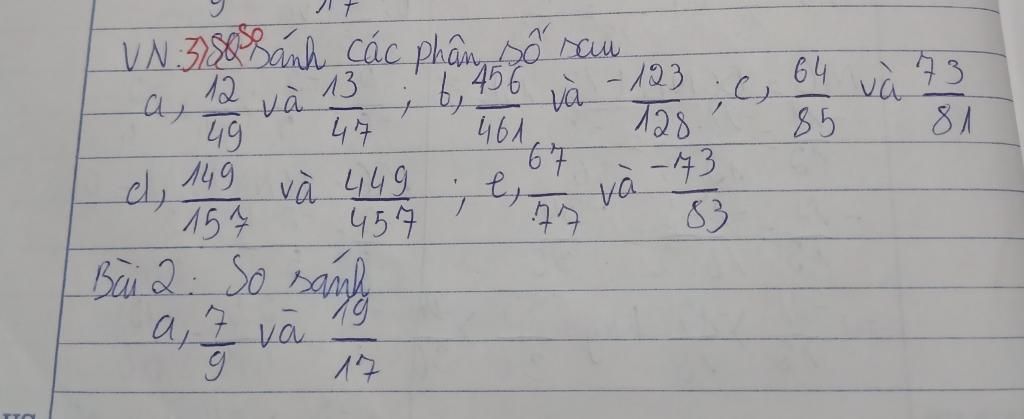 9 17
VN: 3) So sánh các phân số sau
a, 12/49 và 13/47 ; b, 456/461 và -123/128 ; c, 64/85 và 73/81
d, 149/157 và 449/457 ; e, 67/77 và -73/83
Bài 2: So sánh
a, 7/9 và 19/17